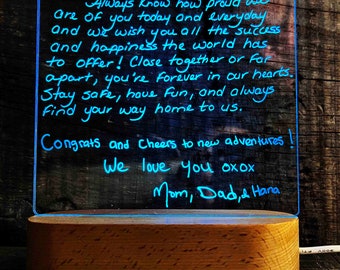 Always know how proud we
are of you today and everyday
and we wish you all the success
and happiness the world has
to offer! Close together or far
apart, you're forever in our hearts.
Stay safe, have fun, and always
find your way home to us.
Congrats and cheers to new adventures!
We love you oxox
Mom, Dad, & Hana